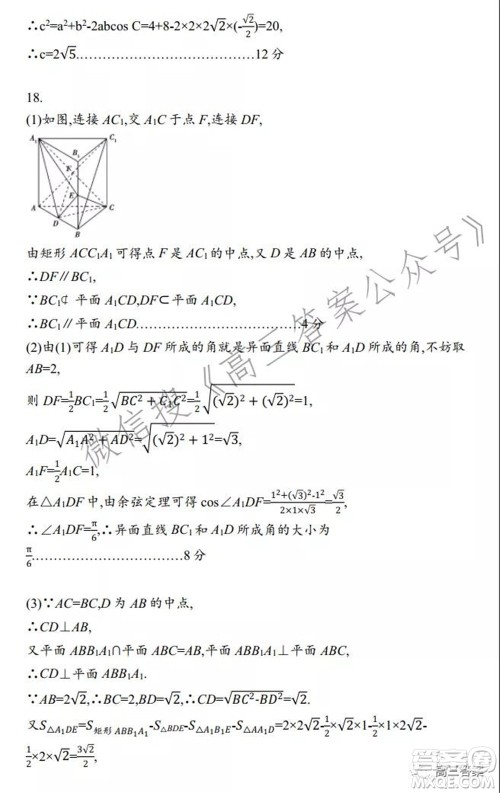 ∴c²=a²+b²-2abcos C=4+8-2×2×2√2×(-√2/2)=20,
∴c=2√5.……………………………………12 分
18.
(1)如图,连接 AC₁,交 A₁C 于点 F,连接 DF,
A₁
C₁
B₁
F
E
A
C
D
B
由矩形 ACC₁A₁ 可得点 F 是 AC₁ 的中点,又 D 是 AB 的中点,
∴DF∥BC₁,
∵BC₁⊄ 平面 A₁CD,DF⊂平面 A₁CD,
∴BC₁∥平面 A₁CD……………………………4 分
(2)由(1)可得 A₁D 与 DF 所成的角就是异面直线 BC₁ 和 A₁D 所成的角,不妨取
AB=2,
则 DF=1/2BC₁=1/2√(BC²+C₁C²)=1/2√((√2)²+(√2)²)=1,
A₁D=√(A₁A²+AD²)=√((√2)²+1²)=√3,
A₁F=1/2A₁C=1,
在△A₁DF 中,由余弦定理可得 cos∠A₁DF=(1²+(√3)²-1²)/(2×1×√3)=√3/2,
∴∠A₁DF=π/6,∴异面直线 BC₁ 和 A₁D 所成角的大小为
π/6……………………………8 分
(3)∵AC=BC,D 为 AB 的中点,
∴CD⊥AB,
又平面 ABB₁A₁∩平面 ABC=AB,平面 ABB₁A₁⊥平面 ABC,
∴CD⊥平面 ABB₁A₁.
∵AB=2√2,∴BC=2,BD=√2,∴CD=√(BC²-BD²)=√2.
又S△A₁DE=S矩形 ABB₁A₁-S△BDE-S△A₁B₁E-S△AA₁D=2×2√2-1/2×√2×1-1/2×1×2√2-
1/2×2×√2=3√2/2,
微信搜《高三答案公众号》
高三答案